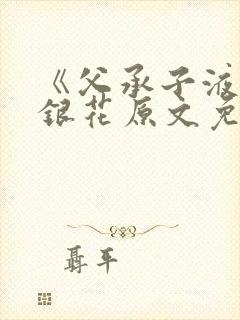 《父承子液
银花原文免
聂平